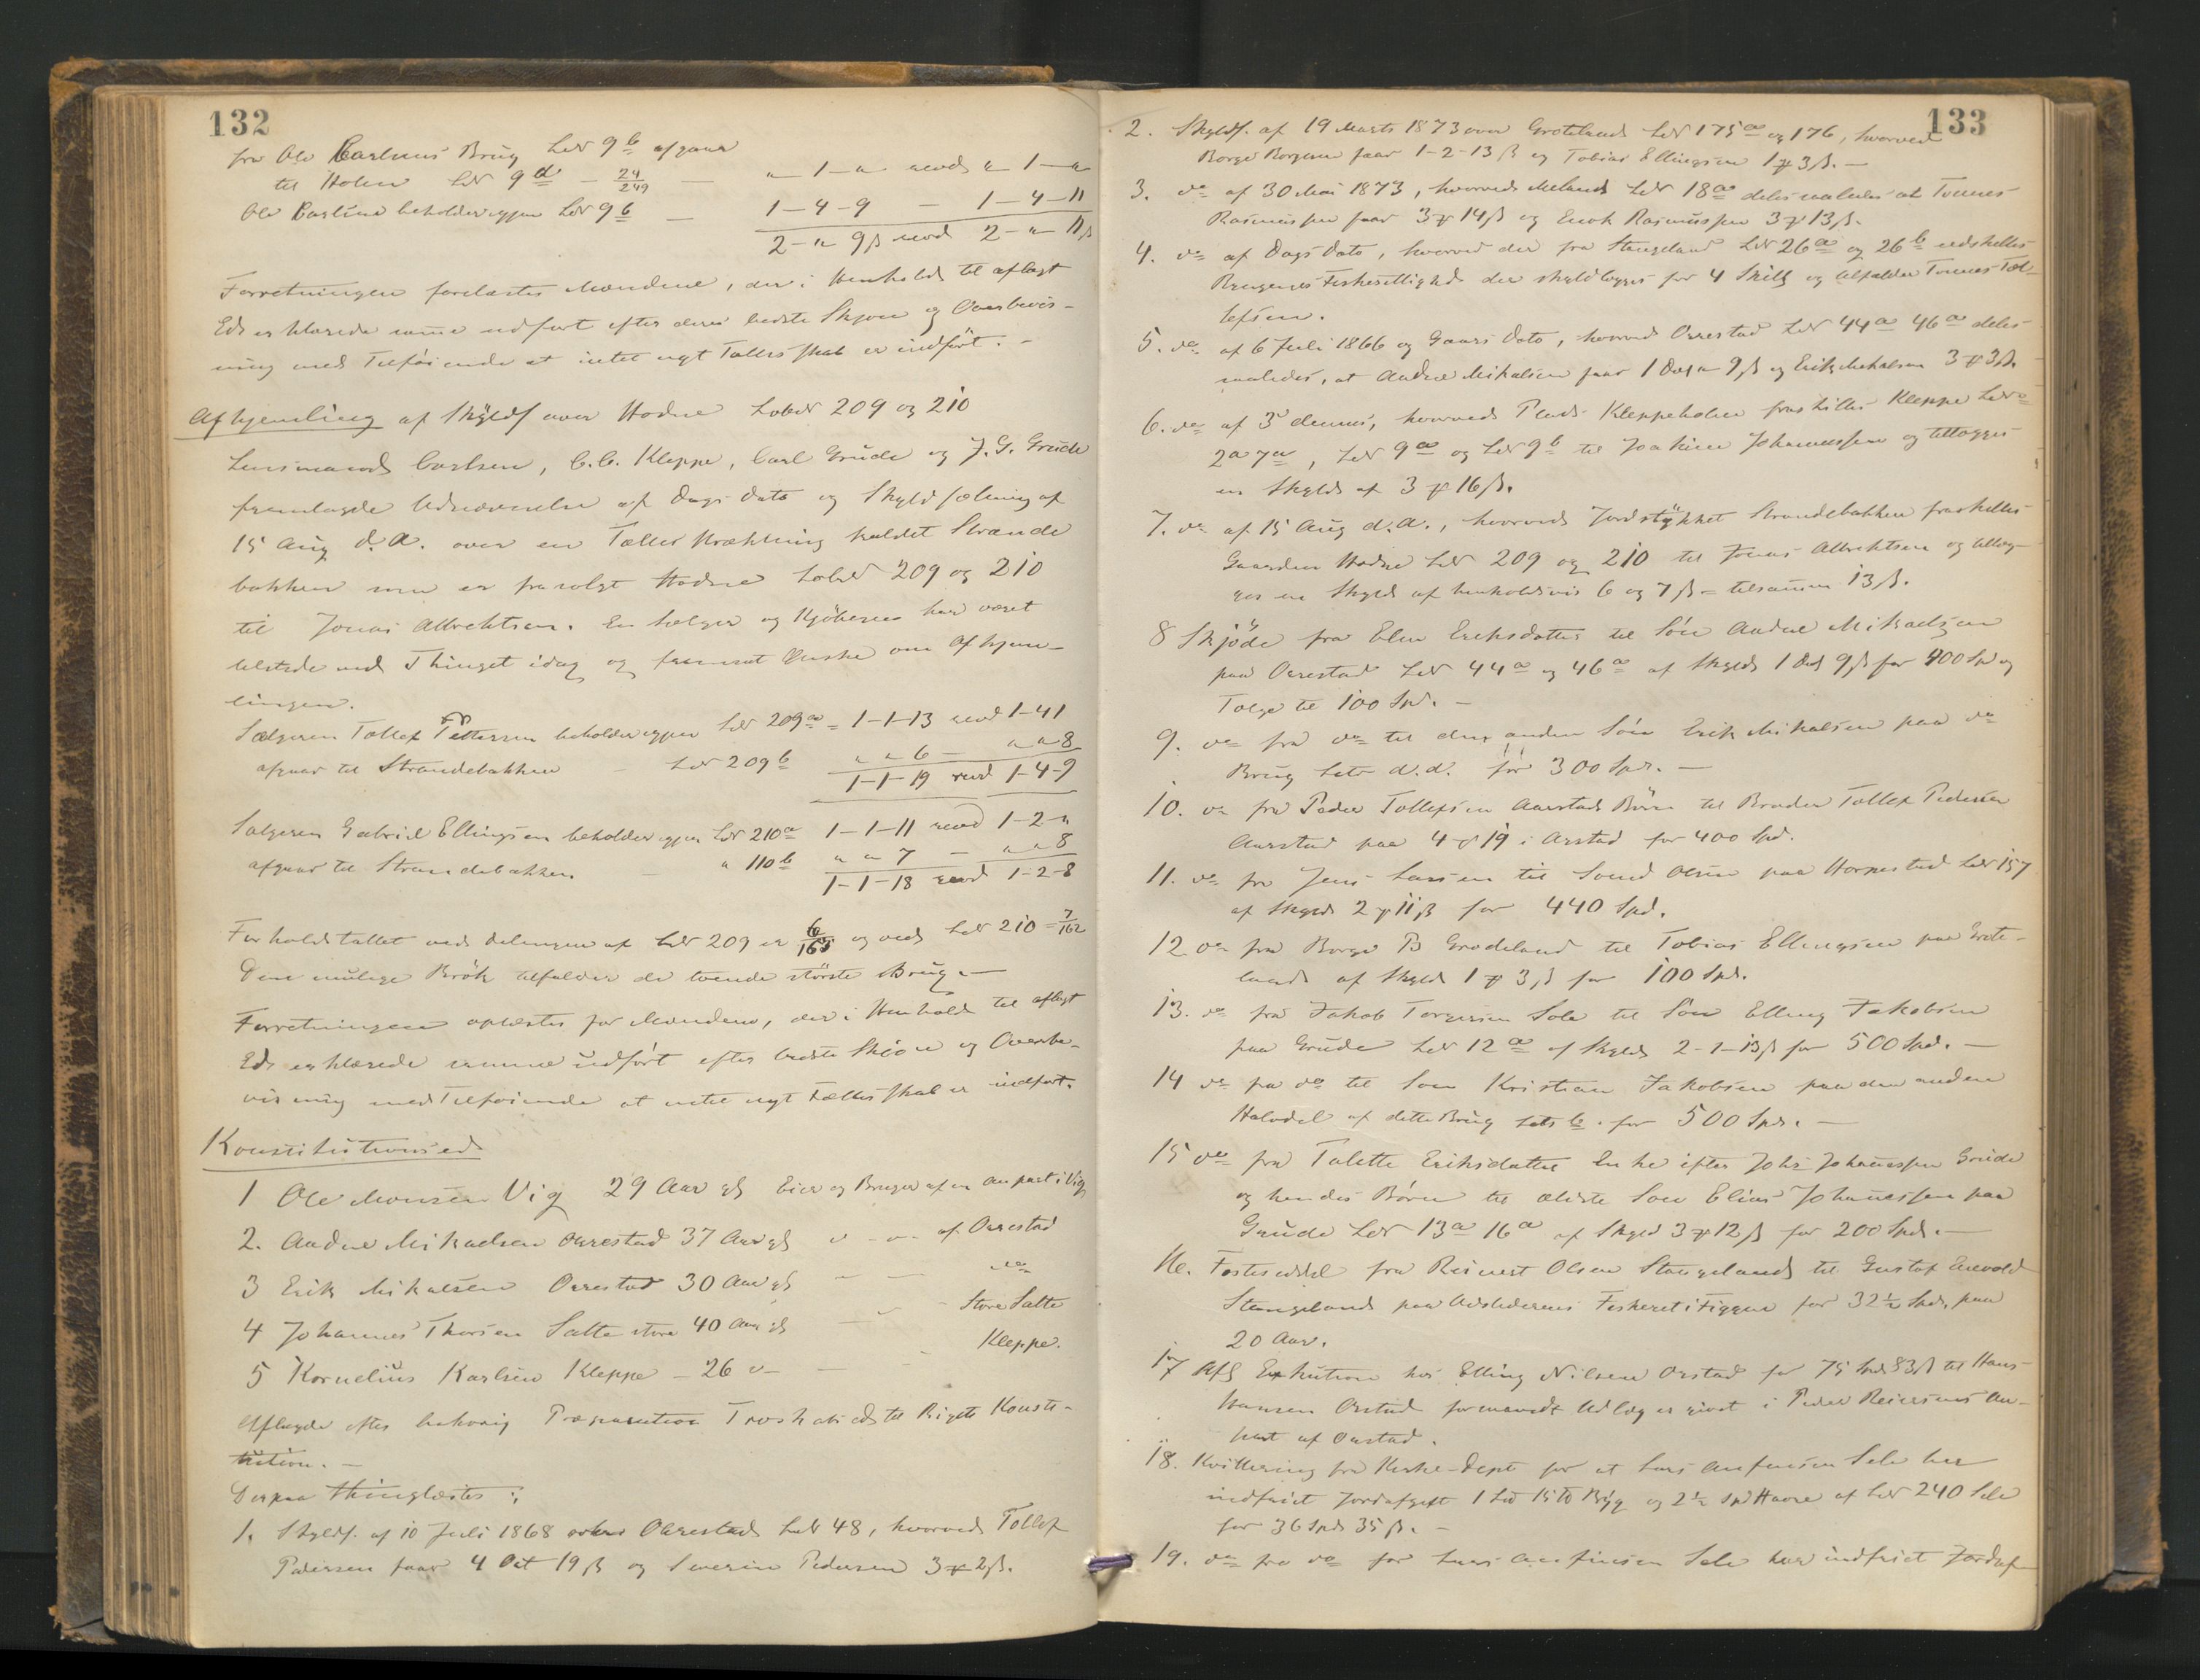 132
fra Ole Carlsens Brug LNr 9b afgaar
til Holen LNr 9d – 24/249 – " 1 – " reved " 1 – "
Ole Carlsens beholder igjen LNr 9b – 1–4–9 – 1–4–11
2 – " 9ß reved 2 – " 11ß
Forretningen forelæstes Mændene, der i Henhold til aflagt
Ed erklærede samme udført efter deres bedste Skjøn og Overbevis-
ning med Tilføiende at intet nyt Fællesskab er indført. –
Afhjemling af Skyldf over Hodne LobNr 209 og 210
Lensmand Carlsen, C. C. Kleppe, Carl Grude og J. G. Grude
fremlagde Udnævnelse af Dags Dato og Skyldsætning af
15 Aug d. A. over en Strækning kaldet Strande
bakken som er frasolgt Hodne LobNr 209 og 210
til Jonas Albrektsen. En Sælger og Kjøberen har været
tilstede ved Thinget idag og fremsat Ønske om Afhjem-
lingen.
Sælgeren Tollef Pettersen beholder igjen LNr 209a = 1–1–13 reved 1–4–1
afgaar til Strandebakken – LNr 209b " " 6 – " " 8
1–1–19 reved 1–4–9
Sælgeren Gabriel Ellingsen beholder igjen LNr 210a 1–1–11 reved 1–2–"
afgaar til Strandebakken – " 110b " " 7 – " " 8
1–1–18 reved 1–2–8
Forholdstallet ved Delingen af LNr 209 er 6/165 og ved LNr 210 = 7/162
Den mulige Brøk tilfalder de tvende største Brug. –
Forretningen oplæstes for Mændene, der i Henhold til aflagt
Ed erklærede samme udført efter bedste Skjøn og Overbe-
visning med Tilføiende at intet nyt Fællesskab er indført.
Konstitutionsed
1 Ole Monsen Vig 29 Aar gl Eier og Bruger af en Anpart i Vig
2. Andreas Mikaelsen Orrestad 37 Aar gl " – " – af Orrestad
3 Erik Mikalsen Orrestad 30 Aar gl – – do
4 Johannes Thorsen Salte store 40 Aar gl – – Store Salte
5 Kornelius Karlsen Kleppe – 26 " – – Kleppe.
Aflagde efter behørig Præparation Troskabsed til Rigets Konsti-
tution. –
Derpaa thinglæstes:
1. Skyldf. af 10 Juli 1868 over Orrestad LNr 48, hvorved Tollef
Pedersen faar 4 Ort 19ß og Severin Pedersen 3 " 2ß.
133
2. Skyldf. af 19 Marts 1873 over Grøteland LNr 175a og 176, hvorved
Borge Borgesen faar 1–2–13ß og Tobias Ellingsen 1 " 3ß. –
3. do af 30 Mai 1873, hvorved Meland LNr 18a deles saaledes at Tønnes
Rasmussen faar 3 " 14ß og Enok Rasmussen 3 " 13ß.
4. do af Dags Dato, hvorved der fra Stangeland LNr 26a og 26b udskilles
Brugenes Fiskerettighed der skyldlægges for 4 Skill og tilfalder Tønnes Tol-
lefsen.
5. do af 6 Juli 1866 og Gaars Dato, hvorved Orrestad LNr 44a 46a deles
saaledes, at Andreas Mikalsen faar 1 Daler " 9ß og Erik Mikalsen 3 " 3ß.
6. do af 3 dennes, hvorved Plads Kleppeholen fraskilles Kleppe LNr
2a 7a, LNr 9a og LNr 9b til Joakim Johannessen og tillægges
en Skyld af 3 " 16ß.
7. do af 15 Aug d. A., hvorved Jordstykket Strandebakken fraskilles
Gaarden Hodne LNr 209 og 210 til Jonas Albrektsen og tillæg-
ges en Skyld af henholdsvis 6 og 7ß = tilsammen 13ß.
8 Skjøde fra Elen Eriksdatter til Søn Andreas Mikaelsen
paa Orrestad LNr 44a og 46a af Skyld 1 Dal 9ß for 400 Spd og
Følge til 100 Spd. –
9. do fra do til den anden Søn Erik Mikalsen paa do
Brug Litr d. d. for 300 Spd. –
10. do fra Peder Tollefsen Aarstads Børn til Broder Tollef Pedersen
Aarstad paa 4 " 19 i Arstad for 400 Spd.
11. do fra Jens Larsen til Svend Olsen paa Horpestad LNr 157
af Skyld 2 " 11ß for 440 Spd.
12. do fra Borge B Grødeland til Tobias Ellingsen paa Grøte-
land af Skyld 1 " 3ß for 100 Spd.
13. do fra Jakob Torgersen Sole til Søn Elling Jakobsen
paa Grude LNr 12a af Skyld 2–1–13ß for 500 Spd. –
14 do fra do til Søn Kristian Jakobsen paa den anden
Halvdel af dette Brug Litr b. for 500 Spd. –
15 do fra Talette Eriksdatter Enke efter Johs Johannessen Grude
og hendes Børn til ældste Søn Elias Johannessen paa
Grude LNr 13a 16a af Skyld 3 " 12ß for 200 Spd. –
16. Festeseddel fra Reinert Olsen Stangeland til Gustaf Enevold
Stangeland paa Udstederens Fiskeret i Figgen for 32½ Spd. paa
20 Aar.
17 Afh Exekution hos Elling Nilsen Orstad for 75 Spd 83ß til Hans
Hansen Orstad formaaende Udlæg er givet i Peder Reiersens An-
part af Orstad.
18. Kvittering fra Kirke-Dept for at Lars Anfinsen Sele har
indfriet Jordafgift 1 Td 15 ℔ Byg og 2½ Spd Havre af LNr 240 Sele
for 36 Spd 35ß. –
19. do fra do for Lars Anfinsen Sele har indfriet Jordaf-